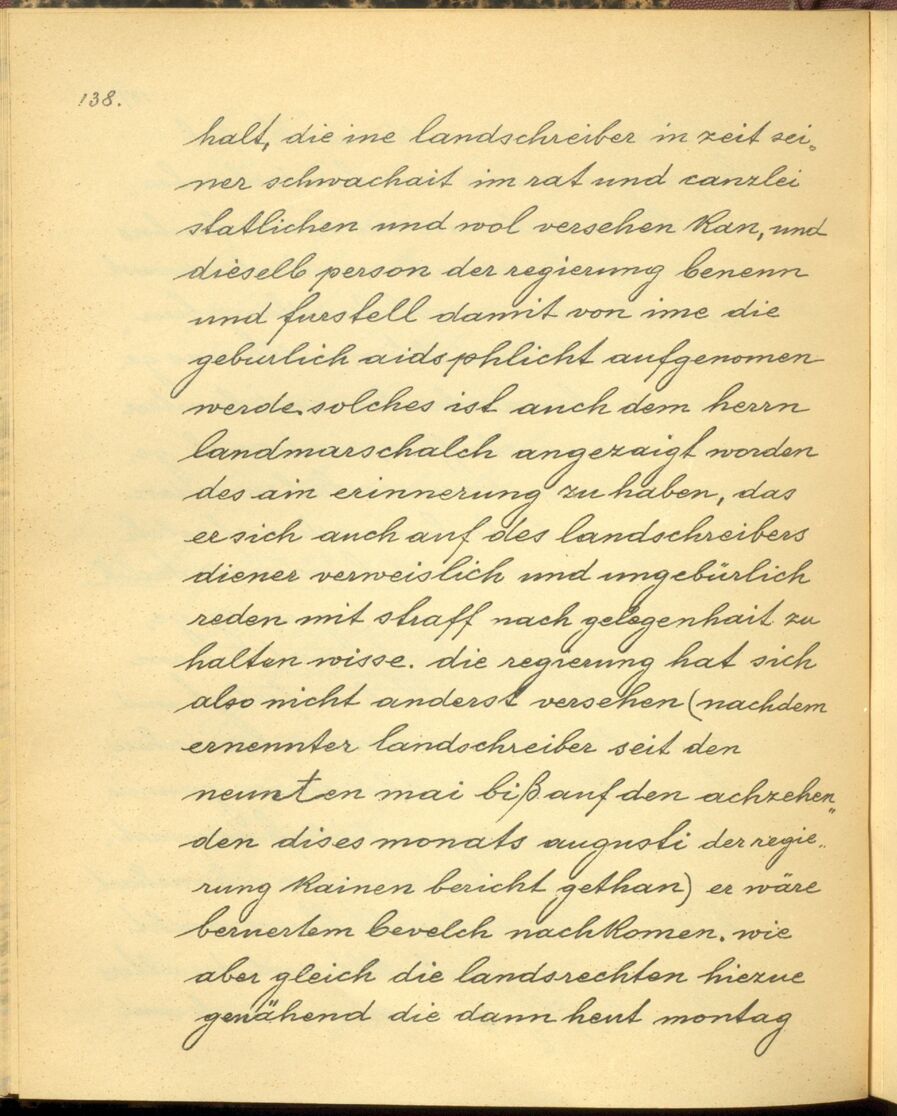 138.
halt, die ine landschreiber in zeit sei„
ner schwachait im rat und canzlei
statlichen und wol versehen kan, und
dieselb person der regierung benenn
und furstell damit von ime die
geburlich aidsphlicht aufgenomen
werde. solches ist auch dem herrn
landmarschalch angezaigt worden
des ain erinnerung zu haben, das
er sich auch auf des landschreibers
diener verweislich und ungebürlich
reden mit straff nach gelegenhait zu
halten wisse. die regierung hat sich
also nicht anderst versehen (nachdem
ernennter landschreiber seit den
neunten mai biß auf den achzehen„
den dises monats augusti der regie„
rung kainen bericht gethan) er wäre
beruertem bevelch nachkomen. wie
aber gleich die landsrechten hiezue
genähend die dann heut montag